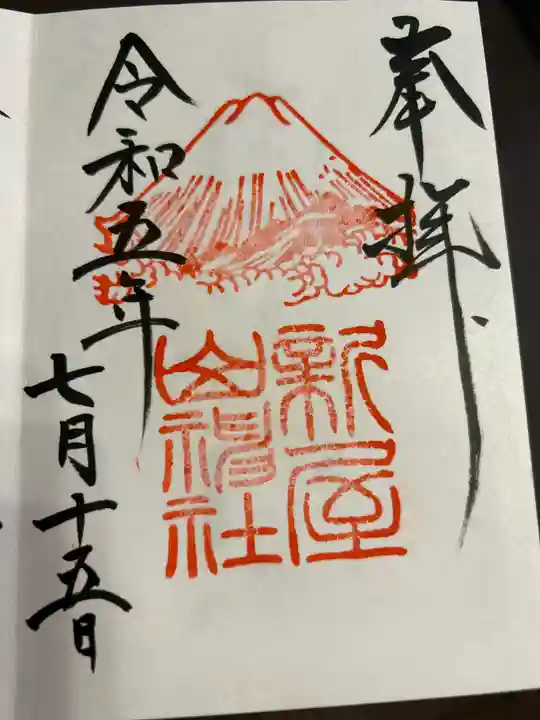 奉拝
新屋
山神社
令和五年
七月十五日